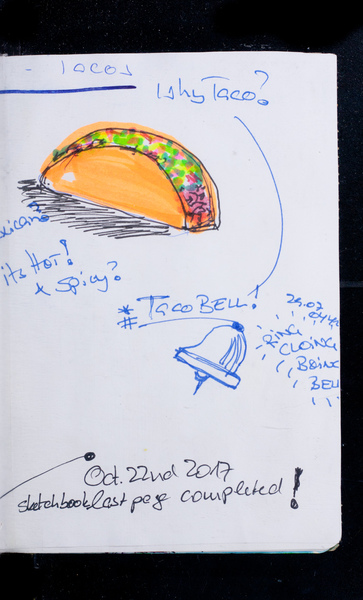 - Tacos
Why Taco?
its Hot!
& Spicy?
* TacoBELL!
#
29.07
RING
CLOING
BOING
BELL
Oct. 22nd 2017
sketchbook last page completed!